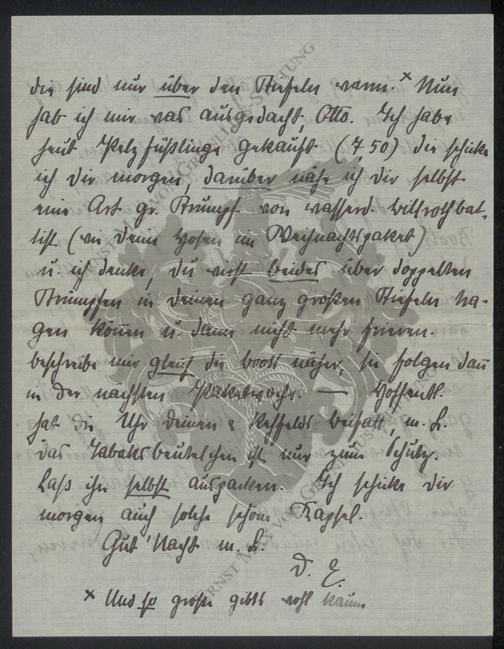 die sind nur über den Stiefeln warm. × Nun
hab ich mir was ausgedacht, Otto. Ich habe
heut Pelzfüßlinge gekauft (7 50) die schicke
ich Dir morgen, darüber nähe ich Dir selbst
eine Art gr. Strumpf von wasserd. Billrothbat-
tist (wie Deine Hosen im Weihnachtspaket)
u. ich denke, Du wirst beides über doppelten
Strümpfen in Deinen ganz großen Stiefeln tra-
gen können u. dann nicht mehr frieren.
beschreibe mir gleich die boots näher, sie folgen dann
in der nächsten Paketwoche. — Hoffentl.
hat die Uhr Deinen & Rehfelds Beifall m. L.
das Tabaksbeutelchen ist nur zum Schutz.
Laß ihn selbst auspacken. Ich schicke Dir
morgen auch solche schöne Kapsel.
Gut' Nacht m. L.
D. E.
× Und so große gibts wohl kaum
ERNST MAX VON GRUNELIUS-STIFTUNG